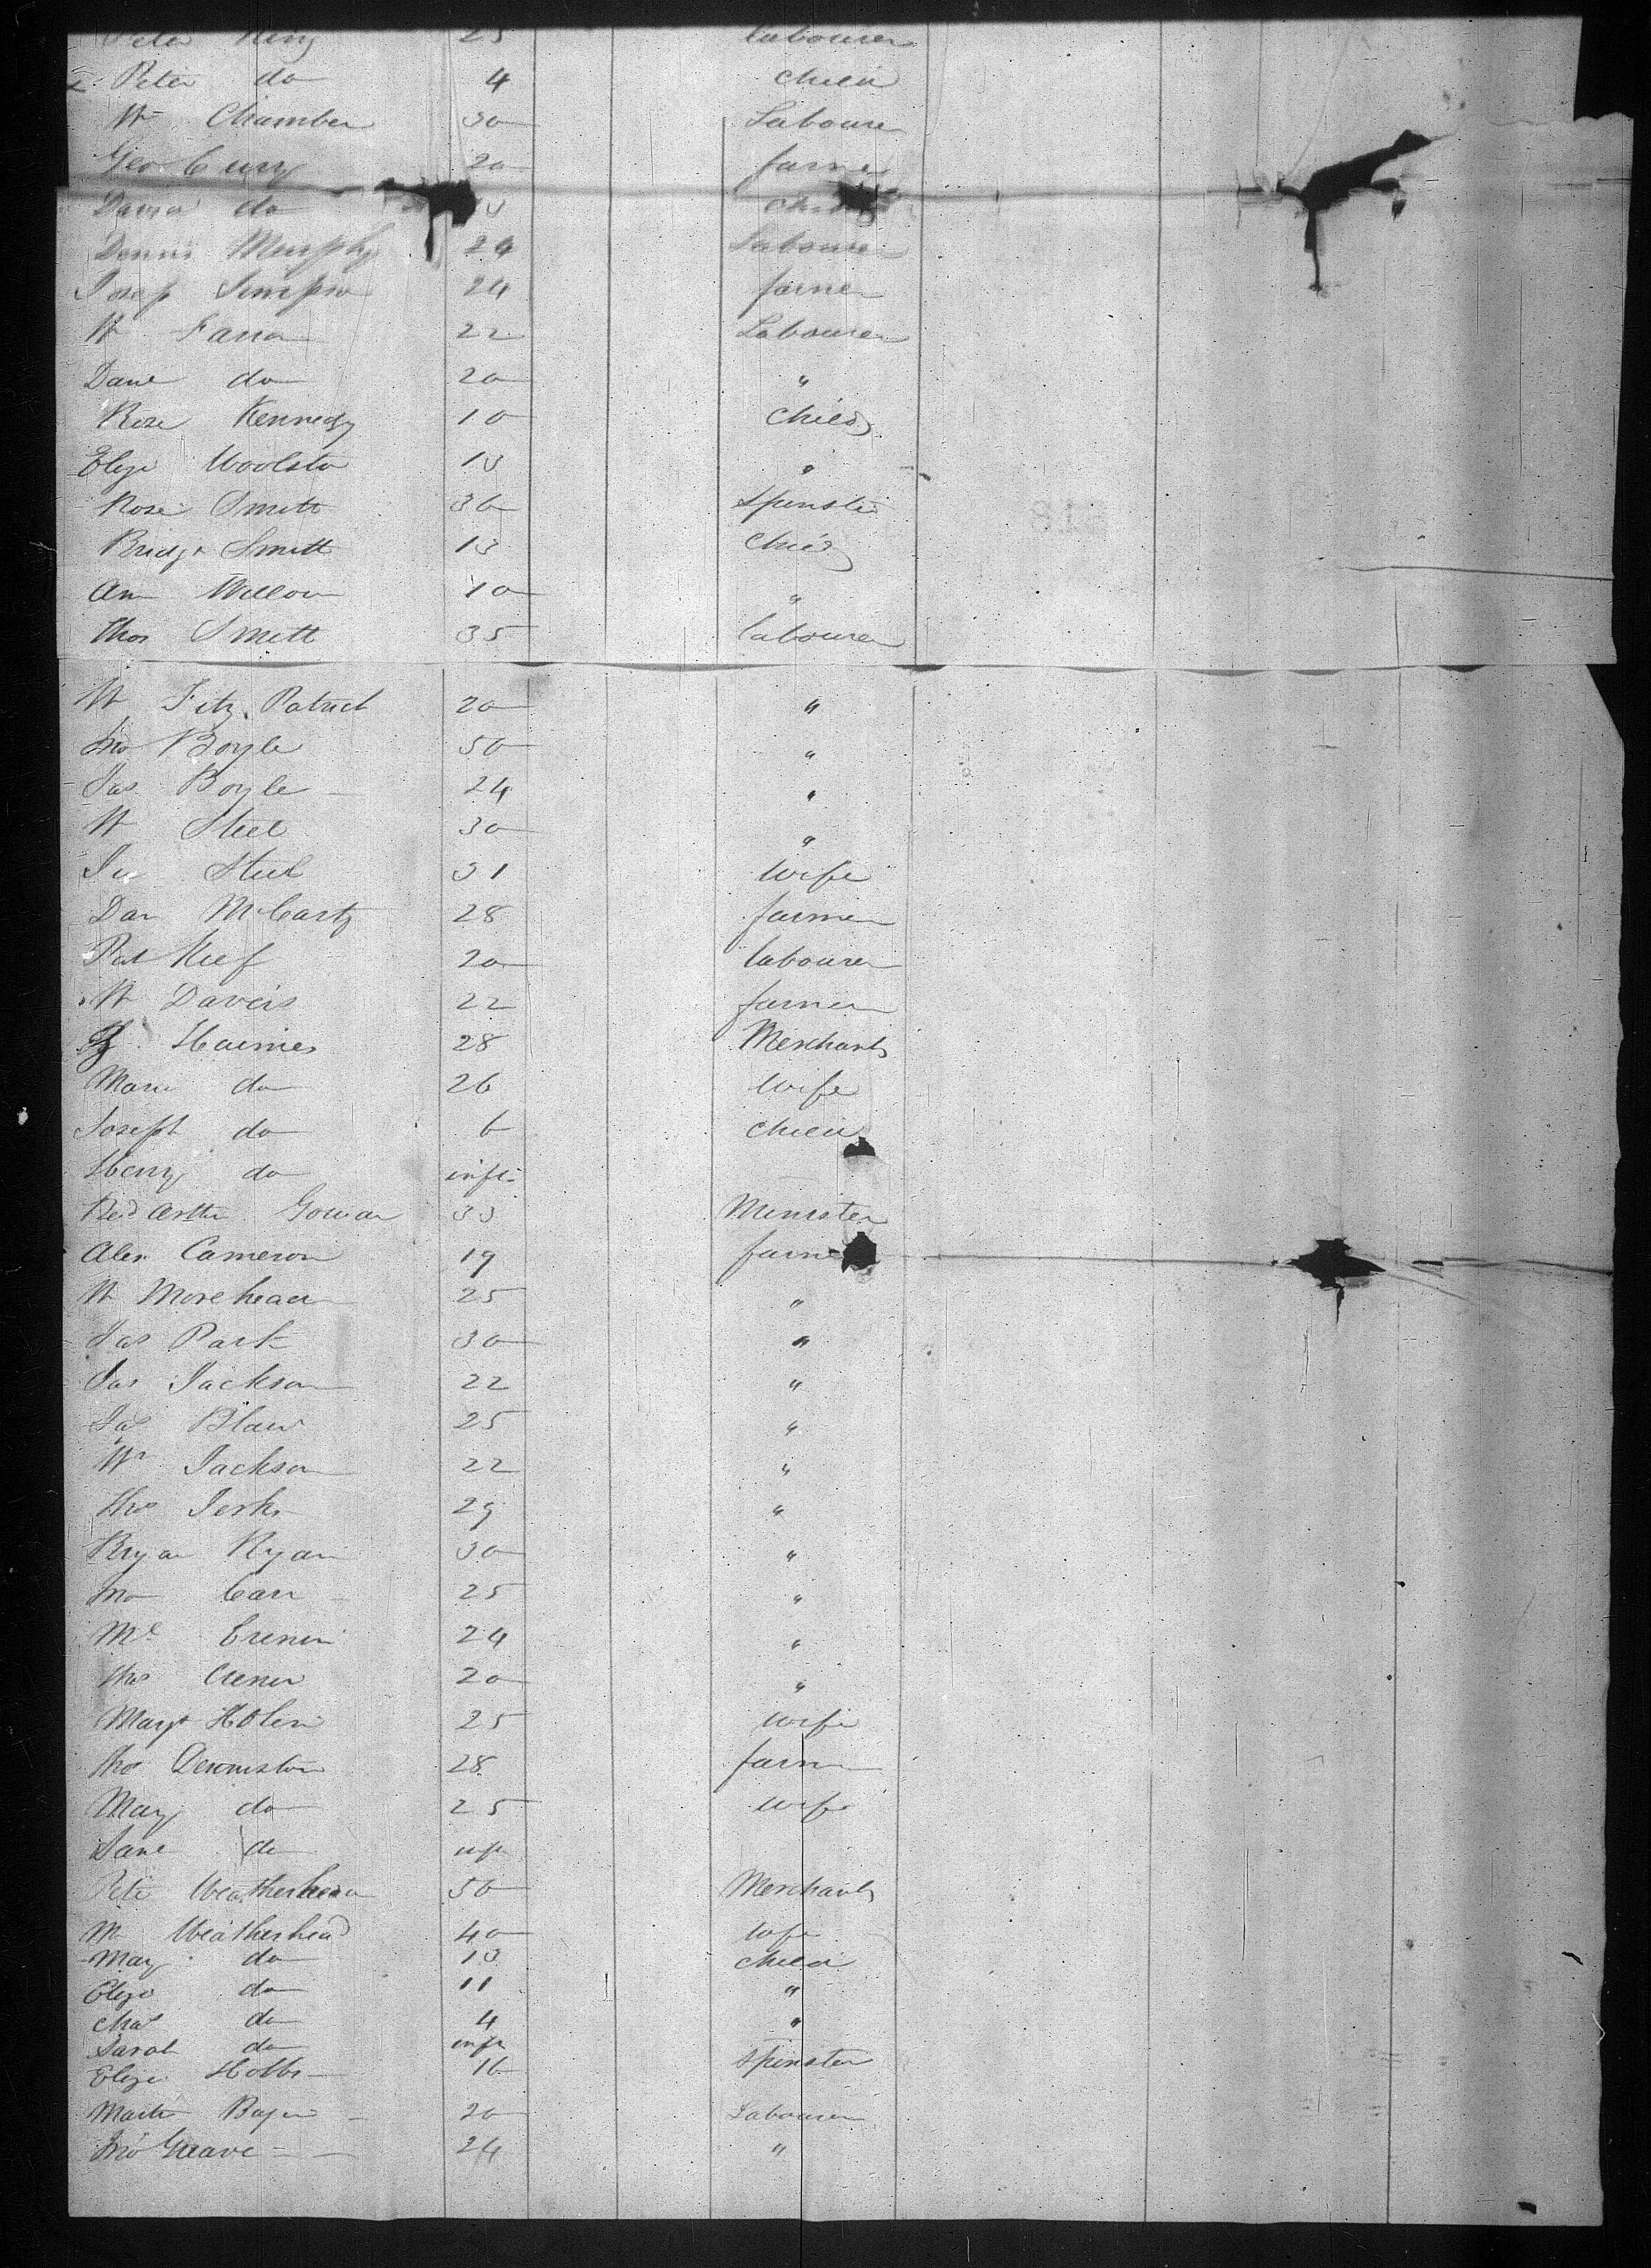 Peter King 25 labourer
Peter do 4 child
Wm Chamber 30 Labourer
Geo Curry 20 farmer
David do child
Dennis Murphy 24 Labourer
Josep Simpson 24 farmer
W Farra 22 Labourer
Dane do 20 "
Rose Kennedy 10 Child
Eliza Woolsto 13 "
Rose Smitt 30 Spinster
Bridgt Smitt 13 Child
Ann 10 "
Thos Smitt 35 labourer
W Fitz Patrick 20 "
Jno Boyle 50 "
Jas Boyle 24 "
W Steel 30 "
Steel 31 Wife
Dan McCarty 28 farmer
Pat Keef 20 labourer
W Daveis 22 farmer
Haimes 28 Merchant
Mary do 26 wife
Joseph do 6 child
Henry do inft
Revd Arthr Gowan 33 Minister
Alex Cameron 19 farmer
W Morehead 25 "
Jas Park 30 "
Jas Jackson 22 "
Jas Blair 25 "
Wm Jackson 22 "
Thos 29 "
Bryan Ryan 30 "
Jno Carr 25 "
Ml 24 "
Thos 20 "
Margt 25 wife
Thos Dennistoun 28 farm
Mary do 25 wife
Jane do inft
Peter Weatherhead 50 Merchant
M Weatherhead 40 wife
Mary do 13 child
Eliza do 11 "
Chas do 4 "
Sarah do inft
Eliza Hobbs 16 Spinster
Martin 20 Labourer
Jno Greave 24 "